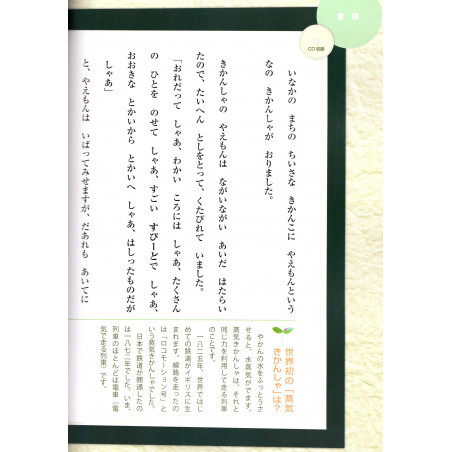 冒頭
CD収録
いなかの まちの ちいさな きかんこに やえもんという
なの きかんしゃが おりました。
きかんしゃの やえもんは ながいながい あいだ はたらい
たので、たいへん としをとって、くたびれて いました。
「おれだって しゃあ、わかい ころには しゃあ、たくさん
の ひとを のせて しゃあ、すごい すぴーどで しゃあ、
おおきな とかいから とかいへ しゃあ、はしったものだが
しゃあ」
と、やえもんは いばってみせますが、だあれも あいてに
世界初の「蒸気
きかんしゃ」は？
やかんの水をふっとうさ
せると、水蒸気がでます。
蒸気きかんしゃは、それと
同じ力を利用して走る列車
のことです。
一八二五年、世界ではじ
めての鉄道がイギリスに生
まれます。線路を走ったの
は「ロコモーション号」と
いう蒸気きかんしゃでした。
日本で鉄道が開通したの
は一八七二年でした。いま、
列車のほとんどは電車（電
気で走る列車）です。